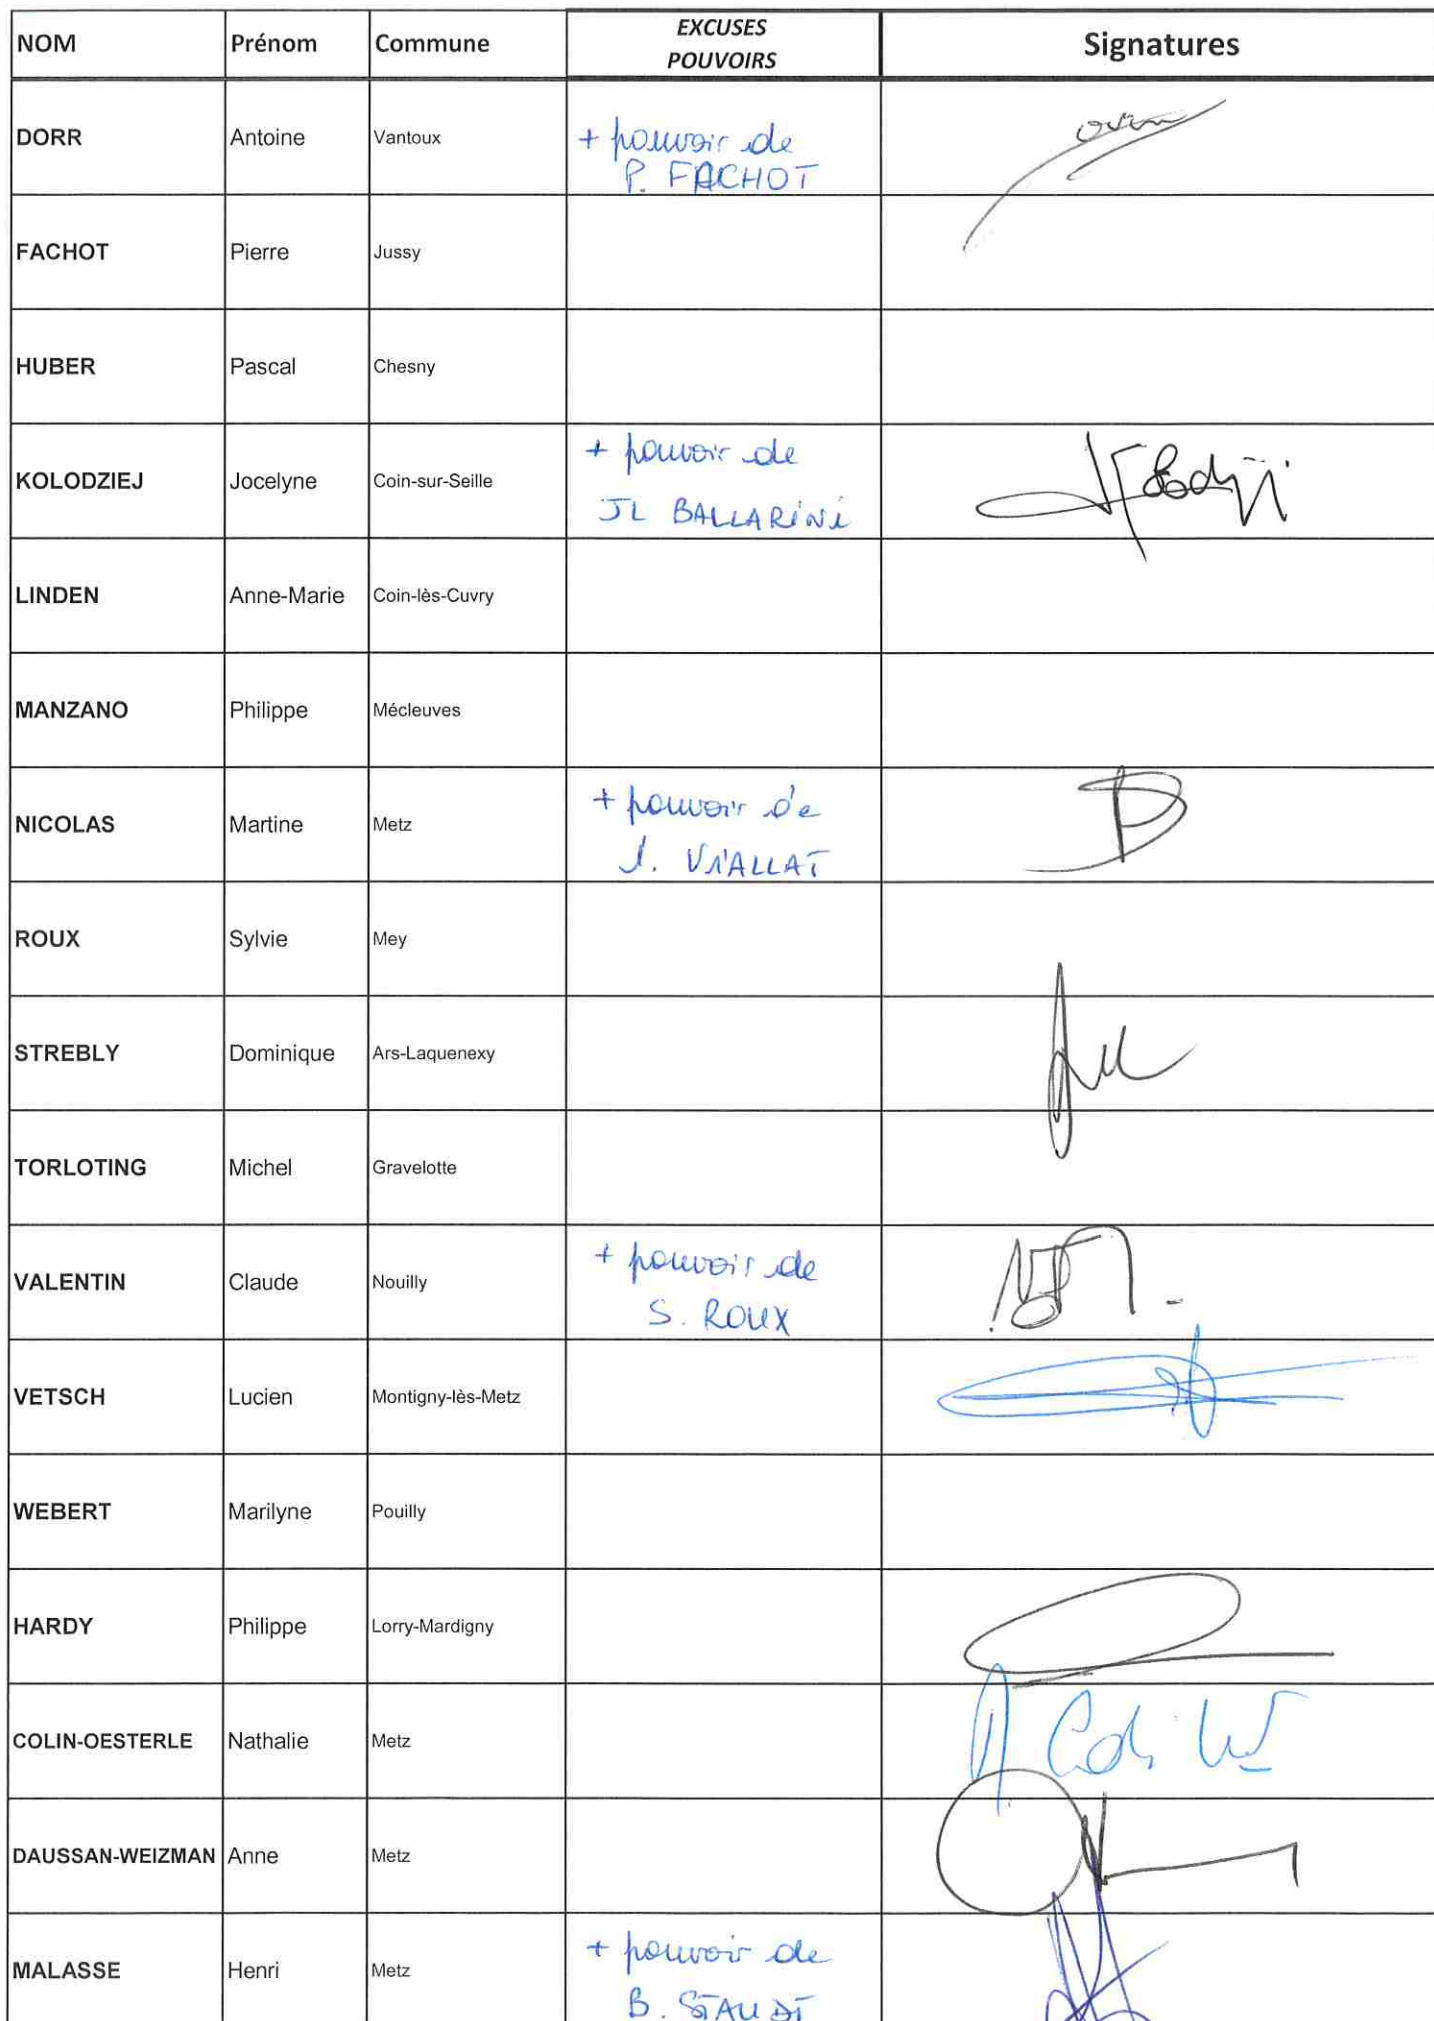 NOM Prénom Commune EXCUSES Signatures
POUVOIRS
DORR Antoine Vantoux + pouvoir de
P. FACHOT
FACHOT Pierre Jussy
HUBER Pascal Chesny
KOLODZIEJ Jocelyne Coin-sur-Seille + pouvoir de
JL BALLARINI
LINDEN Anne-Marie Coin-lès-Cuvry
MANZANO Philippe Mécleuves
NICOLAS Martine Metz + pouvoir de
J. VIALLAT
ROUX Sylvie Mey
STREBLY Dominique Ars-Laquenexy
TORLOTING Michel Gravelotte
VALENTIN Claude Nouilly + pouvoir de
S. ROUX
VETSCH Lucien Montigny-lès-Metz
WEBERT Marilyne Pouilly
HARDY Philippe Lorry-Mardigny
COLIN-OESTERLE Nathalie Metz
DAUSSAN-WEIZMAN Anne Metz
MALASSE Henri Metz + pouvoir de
B. STAUDT